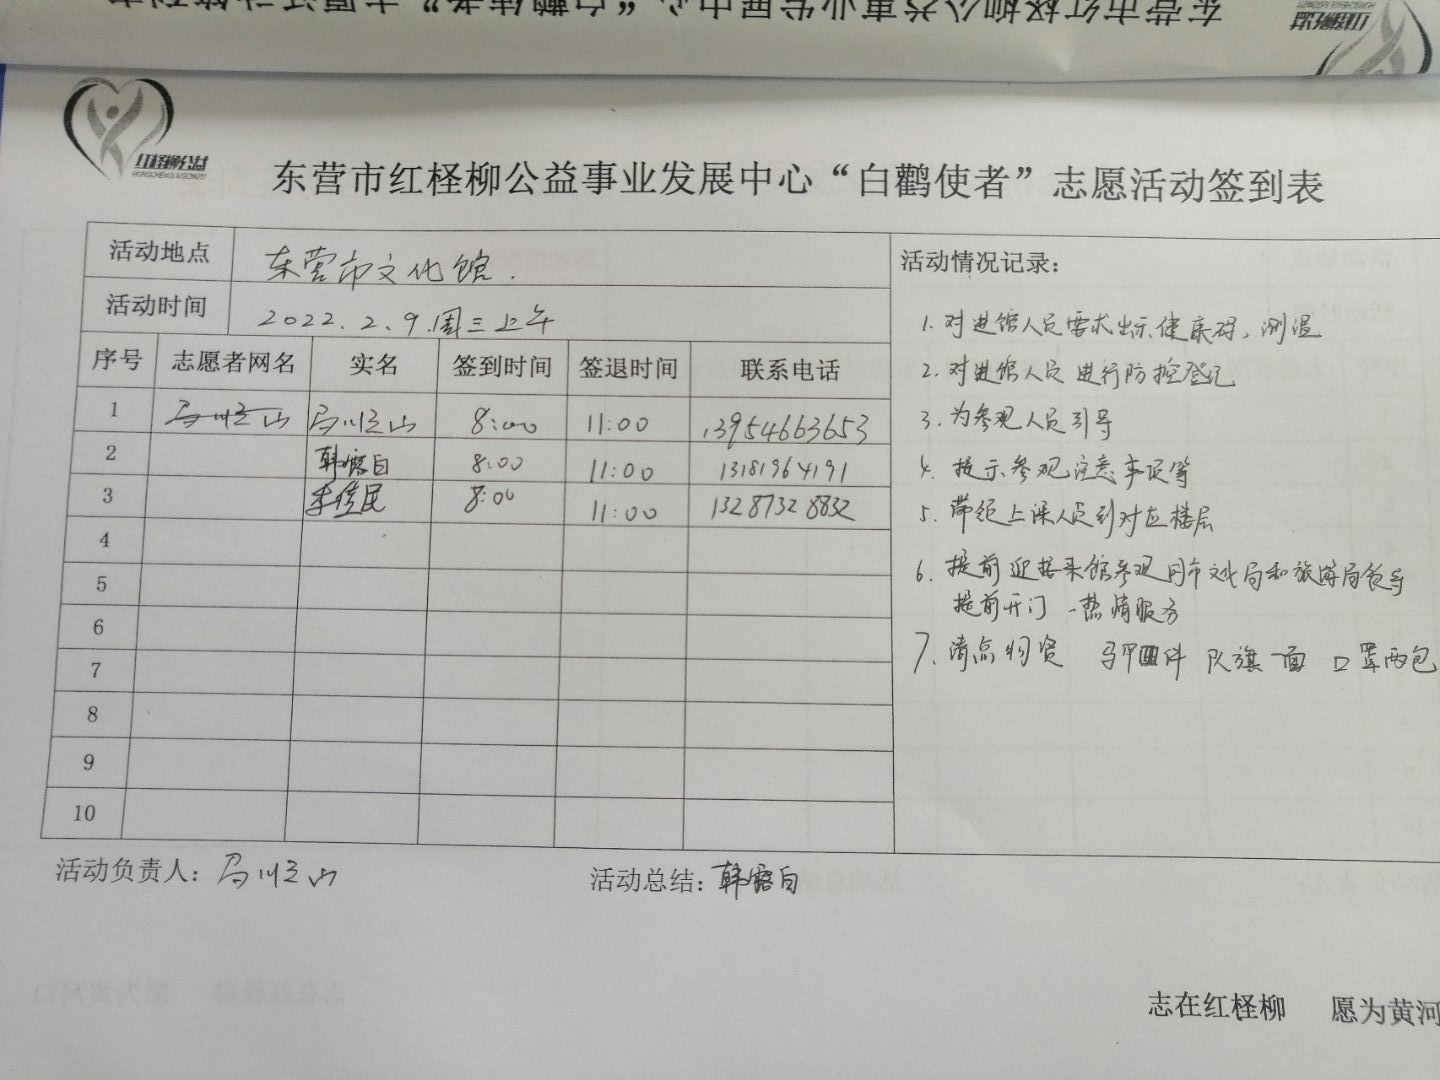 东营市红柽柳公益事业发展中心“白鹳使者”志愿活动签到表
红柽柳公益
活动地点 东营市文化馆.
活动时间 2022.2.9.周三上午
序号 志愿者网名 实名 签到时间 签退时间 联系电话
1 马顺山 马顺山 8:00 11:00 13954663653
2 韩露白 8:00 11:00 13181964191
3 李传民 8:00 11:00 13287328832
4
5
6
7
8
9
10
活动情况记录：
1.对进馆人员要求出示健康码，测温
2.对进馆人员进行防控登记
3.为参观人员引导
4.提示参观注意事项等
5.带领上课人员到对应楼层
6.提前迎接来馆参观的市文化局和旅游局领导
提前开门 热情服务
7.清点物资 马甲 件 队旗一面 口罩两包
活动负责人：马顺山
活动总结：韩露白
志在红柽柳 愿为黄河